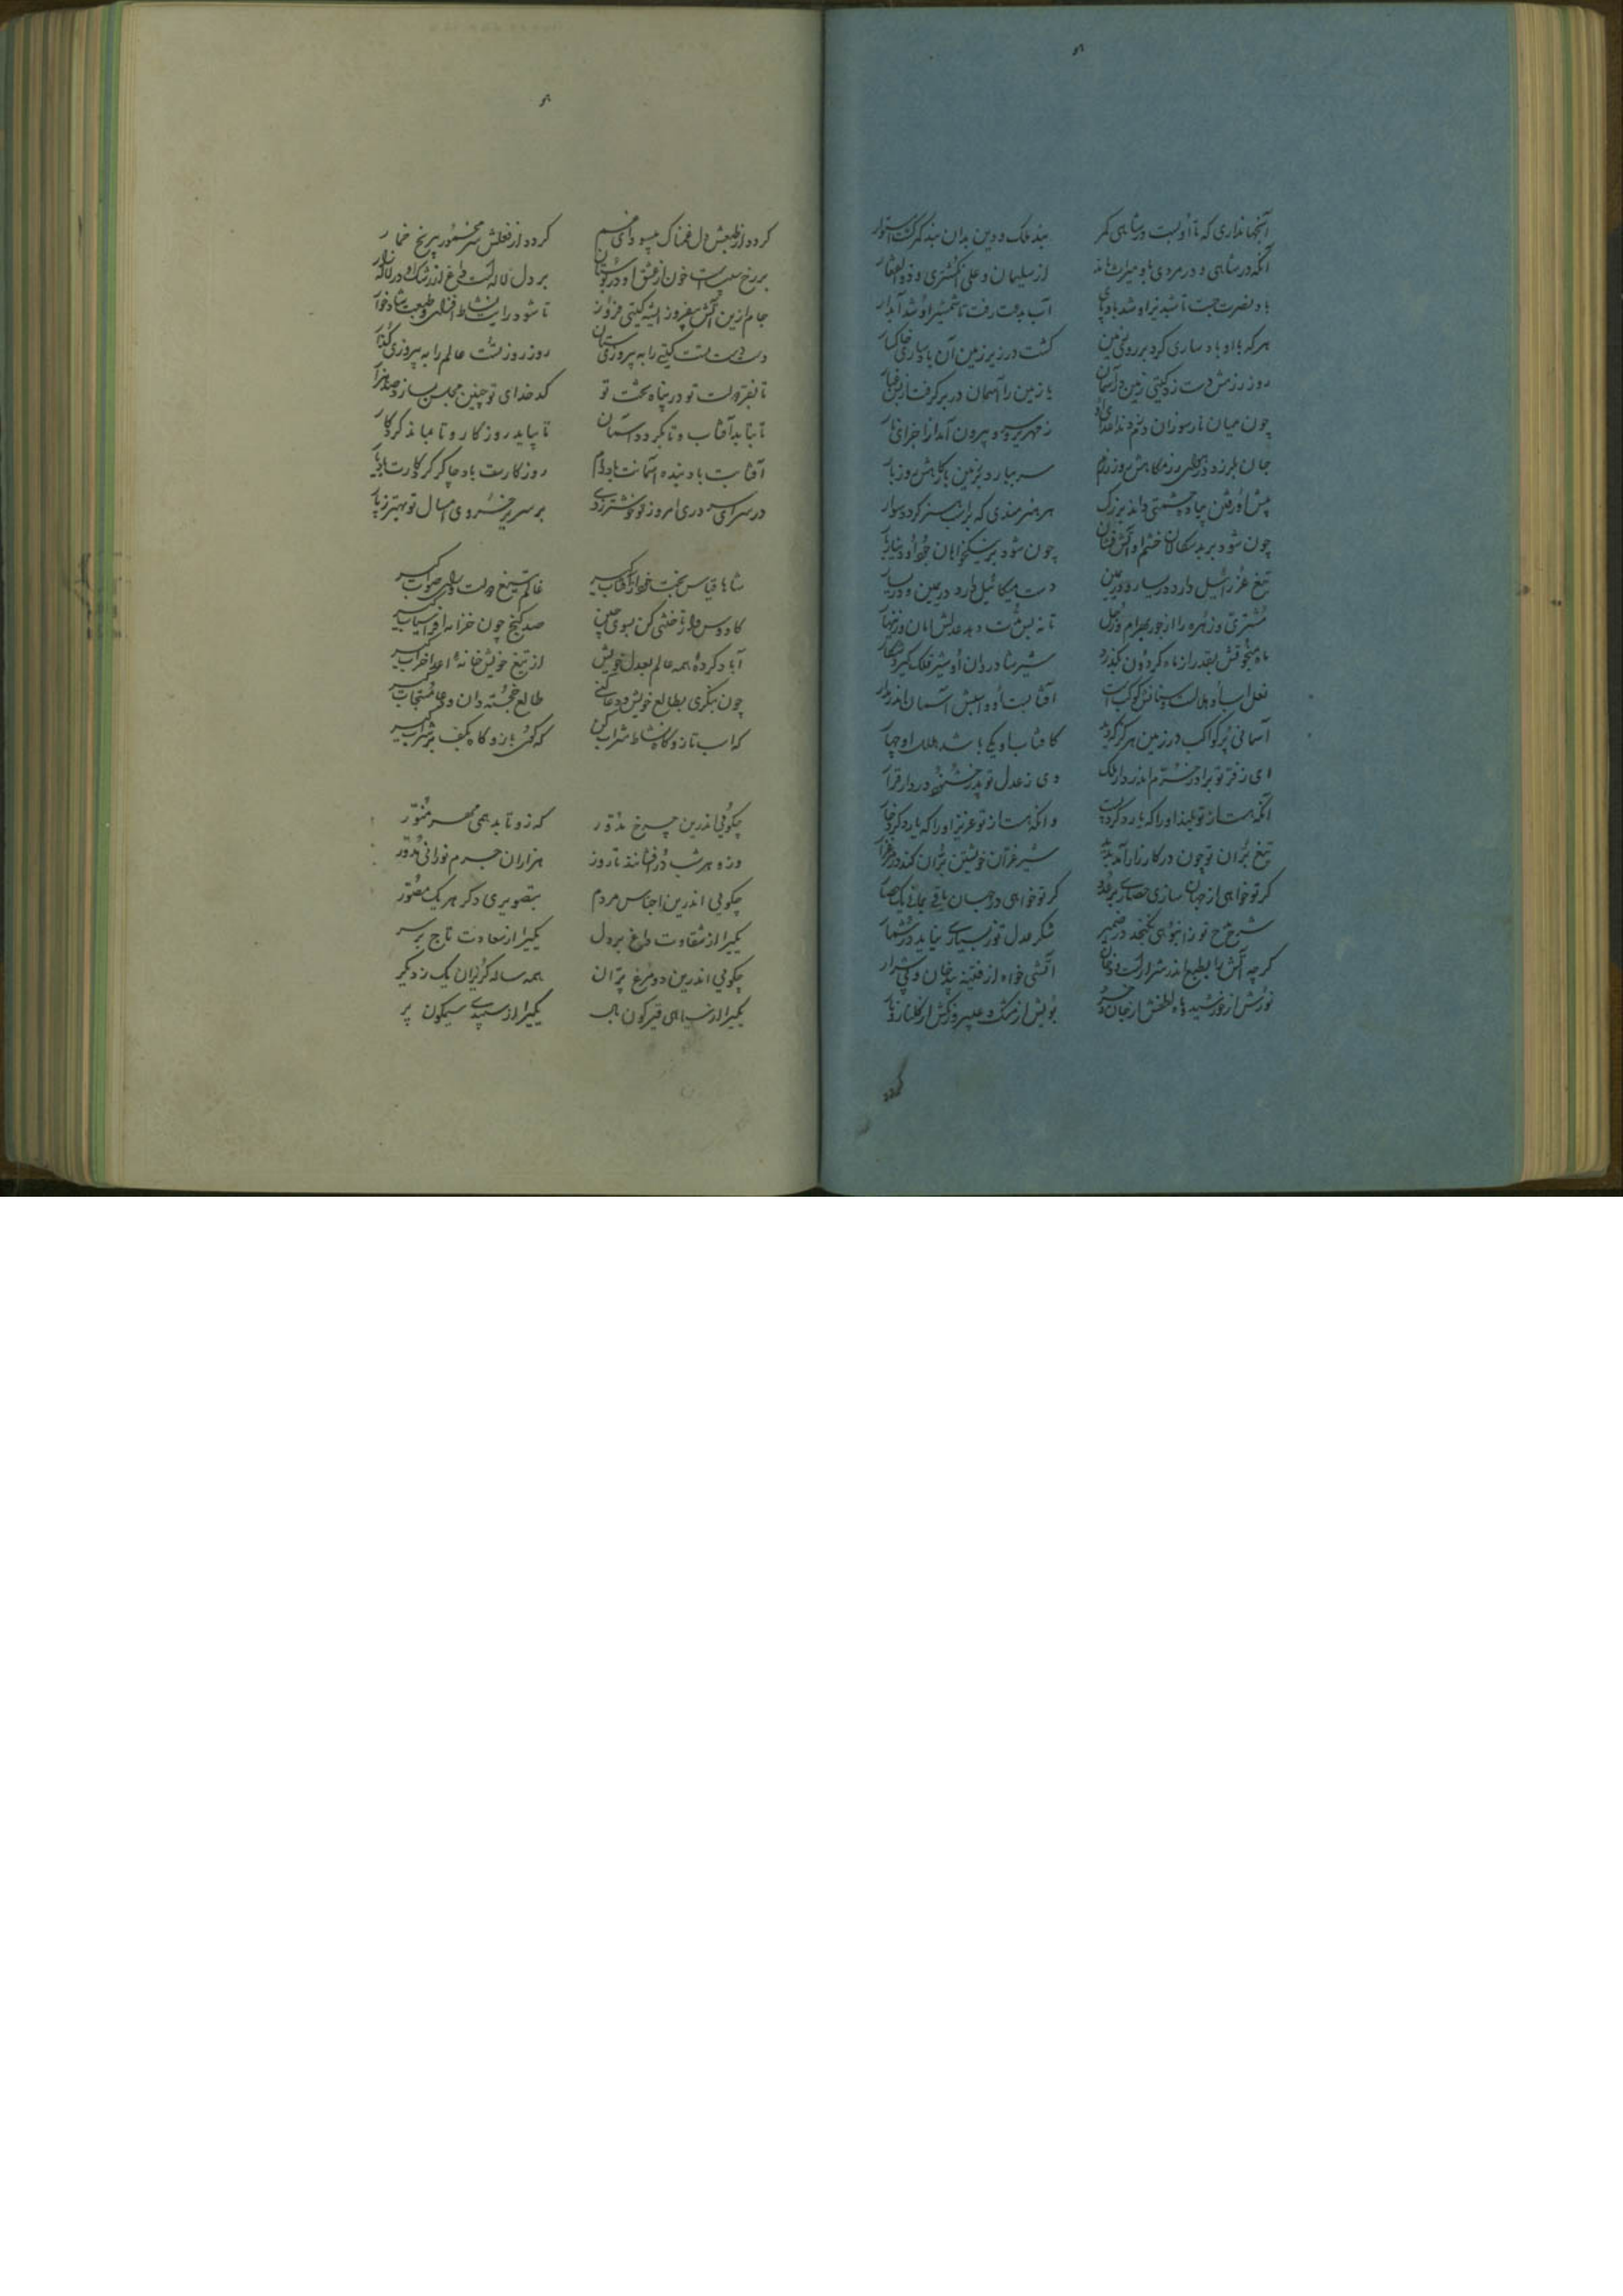 آنجهانداری که تا او بست در شاهی کمر بند ملک و دین بدان بند کمر گشت استوار
آنکه در شاهی و در مردی بدو میراث ماند از سلیمان و علی انگشتری و ذوالفقار
باد نصرت جست تا شبدیز او شد بادپای آب بدعت رفت تا شمشیر او شد آبدار
هر که با او باد ساری کرد بر روی زمین گشت در زیر زمین آن بادساری خاکسار
روز رزمش دست زد گیتی زمین در آسمان تا زمین را آسمان در بر گرفت از بس غبار
چون میان نار سوزان دم زند اعدای او زمهریر سرد بیرون آید از اجزای نار
جان بلرزد دیو را در رزمگاهش روز رزم سر ببارد بر زمین
پیش او رفتن پیاده چشمتی داند بزرگ هر هنرمندی که بر اسب هنر گردد سوار
چون شود بر بدسگالان خشم او آتش فشان چون شود بر نیکخواهان جود او دینار بار
تیغ عزرائیل دارد در یسار و در یمین دست میکائیل دارد در یمین و در یسار
مشتری و زهره را از جور بهرام و زحل تا نه بس مدت دهد عدلش امان و زینهار
ماه منجوقش بقدر از ماه گردون بگذرد شیر شادروان او شیر فلک گیرد شکار
نعل اسب او هلالست و سنانش کوکب است آفتابست او و اسبش آسمان اندر مدار
آسمانی پر کواکب در زمین هرگز که دید کافتاب او یکی باشد هلال او چهار
ای ز فر تو برادر خرم اندر دار ملک وی ز عدل تو پدر خشنود در دار قرار
آنکه هست از تو بلند او را که یارد کرد پست وانکه هست از تو عزیز او را که یارد کرد خوار
تیغ بران تو چون در کارزار آمد پدید شیر غران خویشتن بران کند در مرغزار
گر تو خواهی از جهان سازی حصاری بر عدو گر تو خواهی در جهان باقی نماند یک حصار
شرح مدح تو ز انبوهی نگنجد در ضمیر شکر عدل تو ز بسیاری نیاید در شمار
گرچه آتش را بطبع اندر شرار است و دخان آتشی خواه از قنینه بی دخان و بی شرار
نورش از خورشید و ماه و لطفش از جان و خرد بویش از مشک و عبیر و رنگش از گلنار و نار
گردد
گردد از طبعش دل غمناک بی سودای غم گردد از فعلش سر مخمور بی رنج خمار
بر رخ سیب است خون از عشق او در بوستان بر دل لاله است داغ از رشک او در لاله زار
جام ازین آتش بفروز ای شه گیتی فروز تا شود رایت نشاط افزای و طبعت شادخوار
دست دست تست گیتی را به پیروزی ستان روز روز تست عالم را به پیروزی گذار
تا بفر دولت تو در پناه بخت تو کدخدای تو چنین مجلس بسازد صد هزار
تا بتابد آفتاب و تا بگردد آسمان تا بپاید روزگار و تا بماند کردگار
آفتابت باد بنده آسمانت باد رام روزگارت باد چاکر کردگارت باد یار
در سرای سروری امروز تو خوشتر ز دی بر سریر خسروی امسال تو بهتر ز پار
شاها قیاس بخت خود از آفتاب گیر عالم بتیغ دولت و رای صواب گیر
کاووس وار تاختنی کن بسوی چین صد گنج چون خزانه افراسیاب گیر
آباد کرده همه عالم بعدل خویش از تیغ خویش خانه اعدا خراب گیر
چون بنگری بطالع خویش و دعا کنی طالع خجسته دان و دعا مستجاب گیر
گه اسب تاز و گاه نشاط شراب کن گه گوی باز و گاه بکف بر شراب گیر
چگوئی اندرین چرخ مدور که زو تابد همی مهر منور
وزو هر شب درفشانند تا روز هزاران جرم نورانی مدور
چگویی اندرین اجناس مردم بتصویری دگر هر یک مصور
یکی را از شقاوت داغ بر دل یکی را از سعادت تاج بر سر
چگویی اندرین دو مرغ پران همه ساله گریزان یک ز دیگر
یکی را از سیاهی قیرگون بال یکی را از سپیدی سیمگون پر